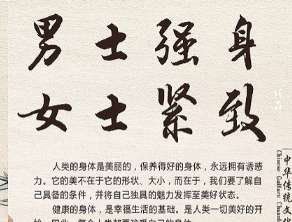 男士强身
女士紧致
人类的身体是美丽的，保养得好的身体，永远拥有诱惑
力。它的美不在于它的形状、大小，而在于，我们要了解自
己具备的条件，并将自己独具的魅力发挥至美好状态。
健康的身体，是幸福生活的基础，是人类一切美好的开
中华传统文化